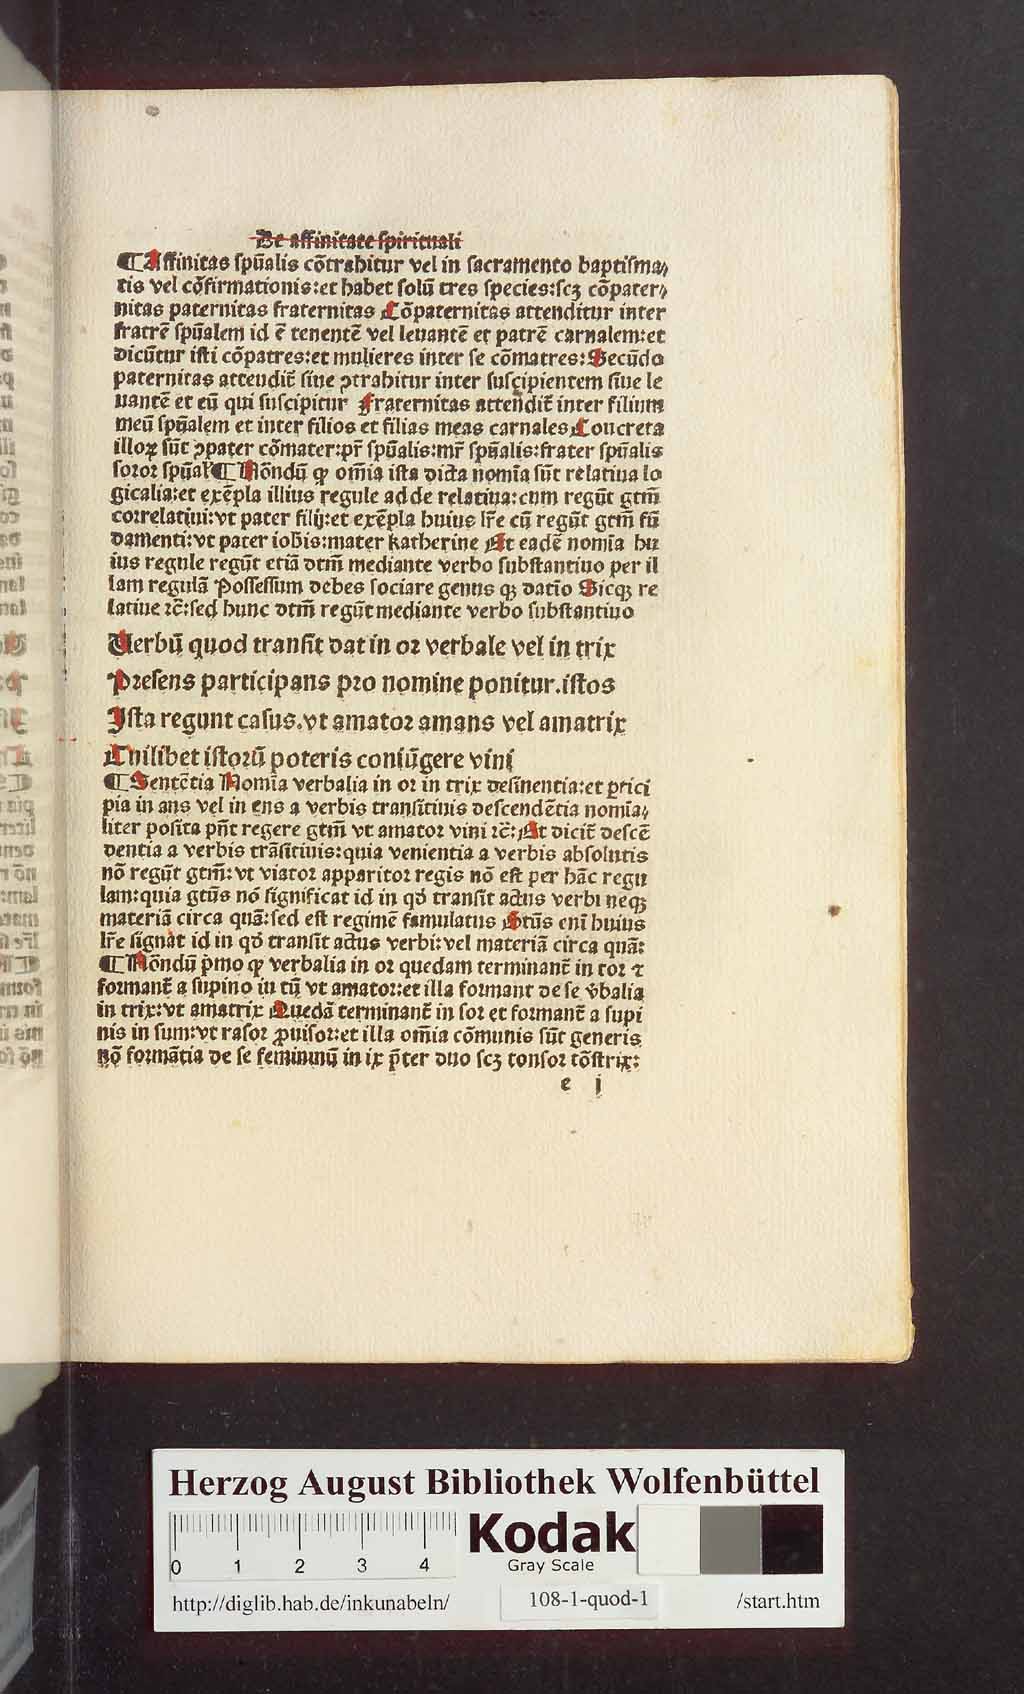 De affinitate spirituali
¶ Affinitas spũalis cõtrahitur vel in sacramento baptisma⸗
tis vel cõfirmationis: et habet solũ tres species: scꝫ cõpater⸗
nitas paternitas fraternitas Cõpaternitas attenditur inter
fratrẽ spũalem id ẽ tenentẽ vel leuantẽ et patrẽ carnalem: et
dicũtur isti cõpatres: et mulieres inter se cõmatres: Secũdo
paternitas attendit᷑ siue ꝯtrahitur inter suscipientem siue le
uantẽ et eũ qui suscipitur Fraternitas attendit᷑ inter filium
meũ spũalem et inter filios et filias meas carnales Concreta
illoꝝ sũt ꝯpater cõmater: pr̃ spũalis: mr̃ spũalis: frater spũalis
soror spũal᷑ ¶ Nõndũ ꝙ om̃ia ista dicta nomĩa sũt relatiua lo
gicalia: et exẽpla illius regule ad de relatiua: cum regũt gtm̃
correlatiui: vt pater filij: et exẽpla huius lr̃e cũ regũt gtm̃ fũ
damenti: vt pater ioh̃is: mater katherine At eadẽ nomĩa hu
ius regule regũt etiã dtm̃ mediante verbo substantiuo per il
lam regulã Possessum debes sociare genus qꝫ datĩo Sicqꝫ re
latiue ꝛc̃: sed hunc dtm̃ regũt mediante verbo substantiuo
Verbũ quod transit dat in or verbale vel in trix
Presens participans pro nomine ponitur. istos
Ista regunt casus. vt amator amans vel amatrix
Cuilibet istorũ poteris coniũgere vini
¶ Sentẽtia Nomĩa verbalia in or in trix desinentia: et p̃tici
pia in ans vel in ens a verbis transitiuis descendẽtia nomĩa⸗
liter posita pñt regere gtm̃ vt amator vini ꝛc̃: At dicit᷑ descẽ
dentia a verbis trãsitiuis: quia venientia a verbis absolutis
nõ regũt gtm̃: vt viator apparitor regis nõ est per hãc regu
lam: quia gtũs nõ significat id in qđ transit actus verbi neqꝫ
materiã circa quã: sed est regimẽ famulatus Gtũs eni huius
lr̃e signat id in qđ transit actus verbi: vel materiã circa quã:
¶ Nõndũ p̃mo ꝙ verbalia in or quedam terminant᷑ in tor ⁊
formant᷑ a supino in tũ vt amator: et illa formant de se v̾balia
in trix: vt amatrix Quedã terminant᷑ in sor et formant᷑ a supi
nis in sum: vt rasor ꝓuisor: et illa om̃ia cõmunis sũt generis
nõ formãtia de se femininũ in ix p̃ter duo scꝫ tonsor tõstrix:
e j
Herzog August Bibliothek Wolfenbüttel
0 1 2 3 4
Kodak
Gray Scale
http://diglib.hab.de/inkunabeln/ 108-1-quod-1 /start.htm